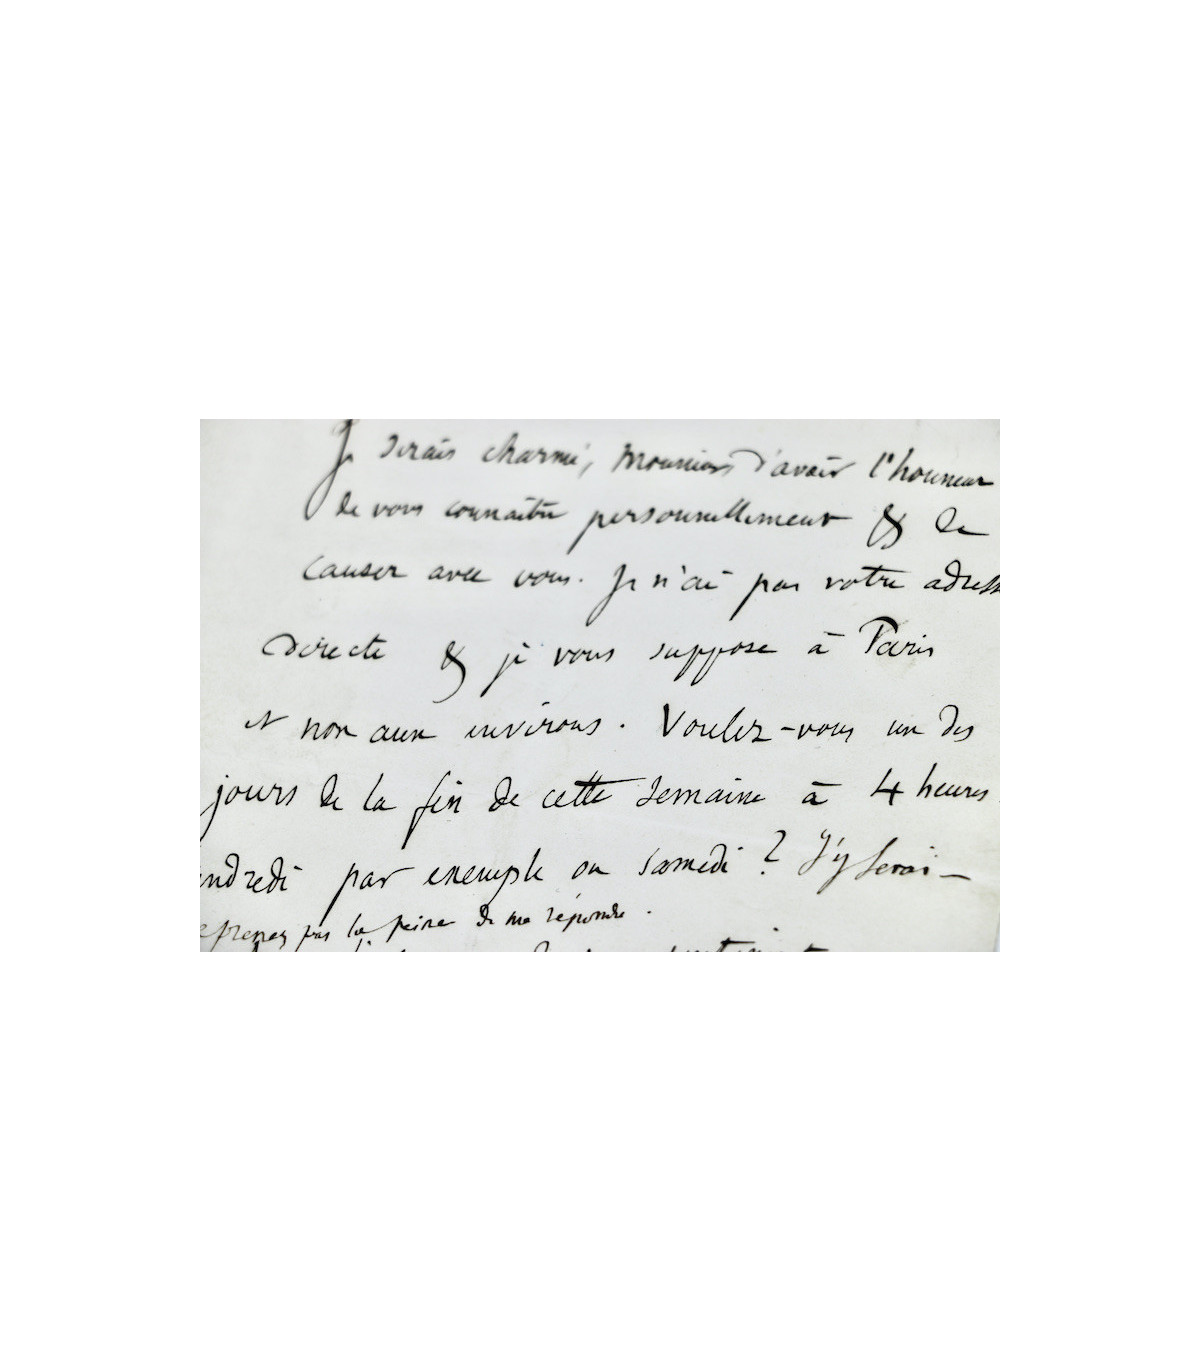 Je serais charmé, monsieur d'avoir l'honneur
de vous connaître personnellement & de
causer avec vous. Je n'ai pas votre adress
directe & je vous suppose à Paris
et non aux environs. Voulez-vous un des
jours de la fin de cette semaine à 4 heures
endredi par exemple ou samedi? J'y serai—
e prenez pas la peine de me répondre.